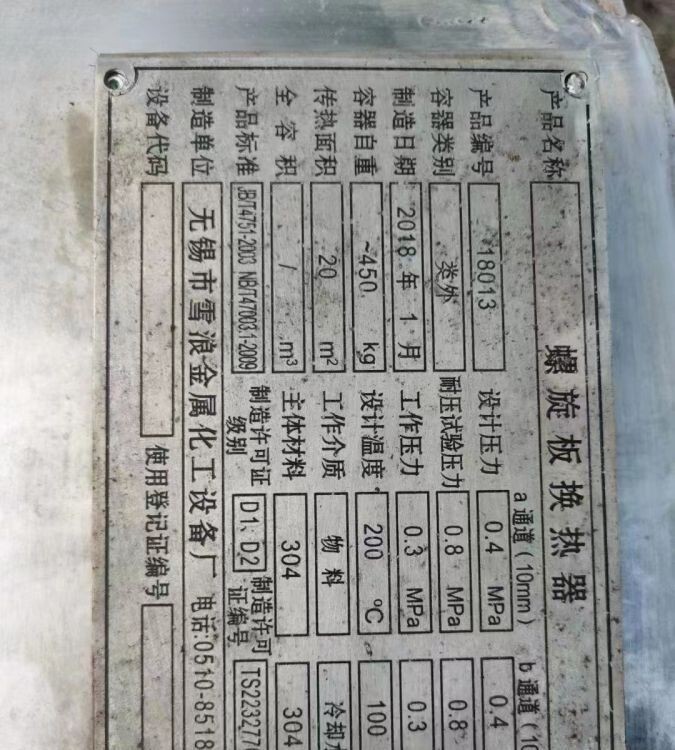 产品名称 螺旋板换热器
a通道(10mm) b通道(10
产品编号 18013 设计压力 0.4 MPa 0.4
容器类别 类外 耐压试验压力 0.8 MPa 0.8
制造日期 2018年1月 工作压力 0.3 MPa 0.3
容器自重 ~450 kg 设计温度 200 ℃ 100
传热面积 20 m² 工作介质 物料 冷却水
全容积 / m³ 主体材料 304 304
产品标准 JB/T4751-2003 NB/T47003.1-2009 制造许可证级别 D1、D2 制造许可证编号 TS223277
制造单位 无锡市雪浪金属化工设备厂 电话:0510-8518
设备代码 使用登记证编号